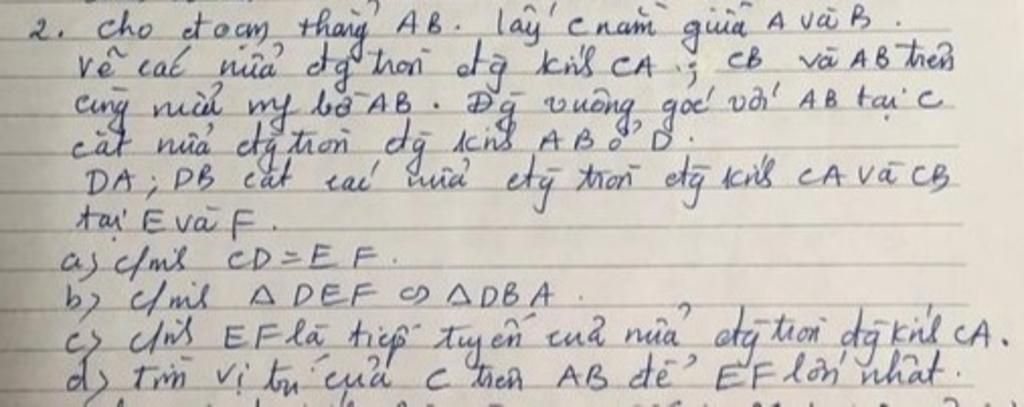 2. Cho đoạn thẳng AB. lấy C nằm giữa A và B.
Vẽ các nửa đg tròn đg kính CA; CB và AB trên
cùng nửa mp bờ AB. Đg vuông góc với AB tại C
cắt nửa đg tròn đg kính AB ở D.
DA; DB cắt các nửa đg tròn đg kính CA và CB
tại E và F.
a) c/m's CD = EF.
b) c/m's Δ DEF ∽ Δ DBA.
c) c/m's EF là tiếp tuyến của nửa đg tròn đg kính CA.
d) tìm vị trí của C trên AB để EF lớn nhất.